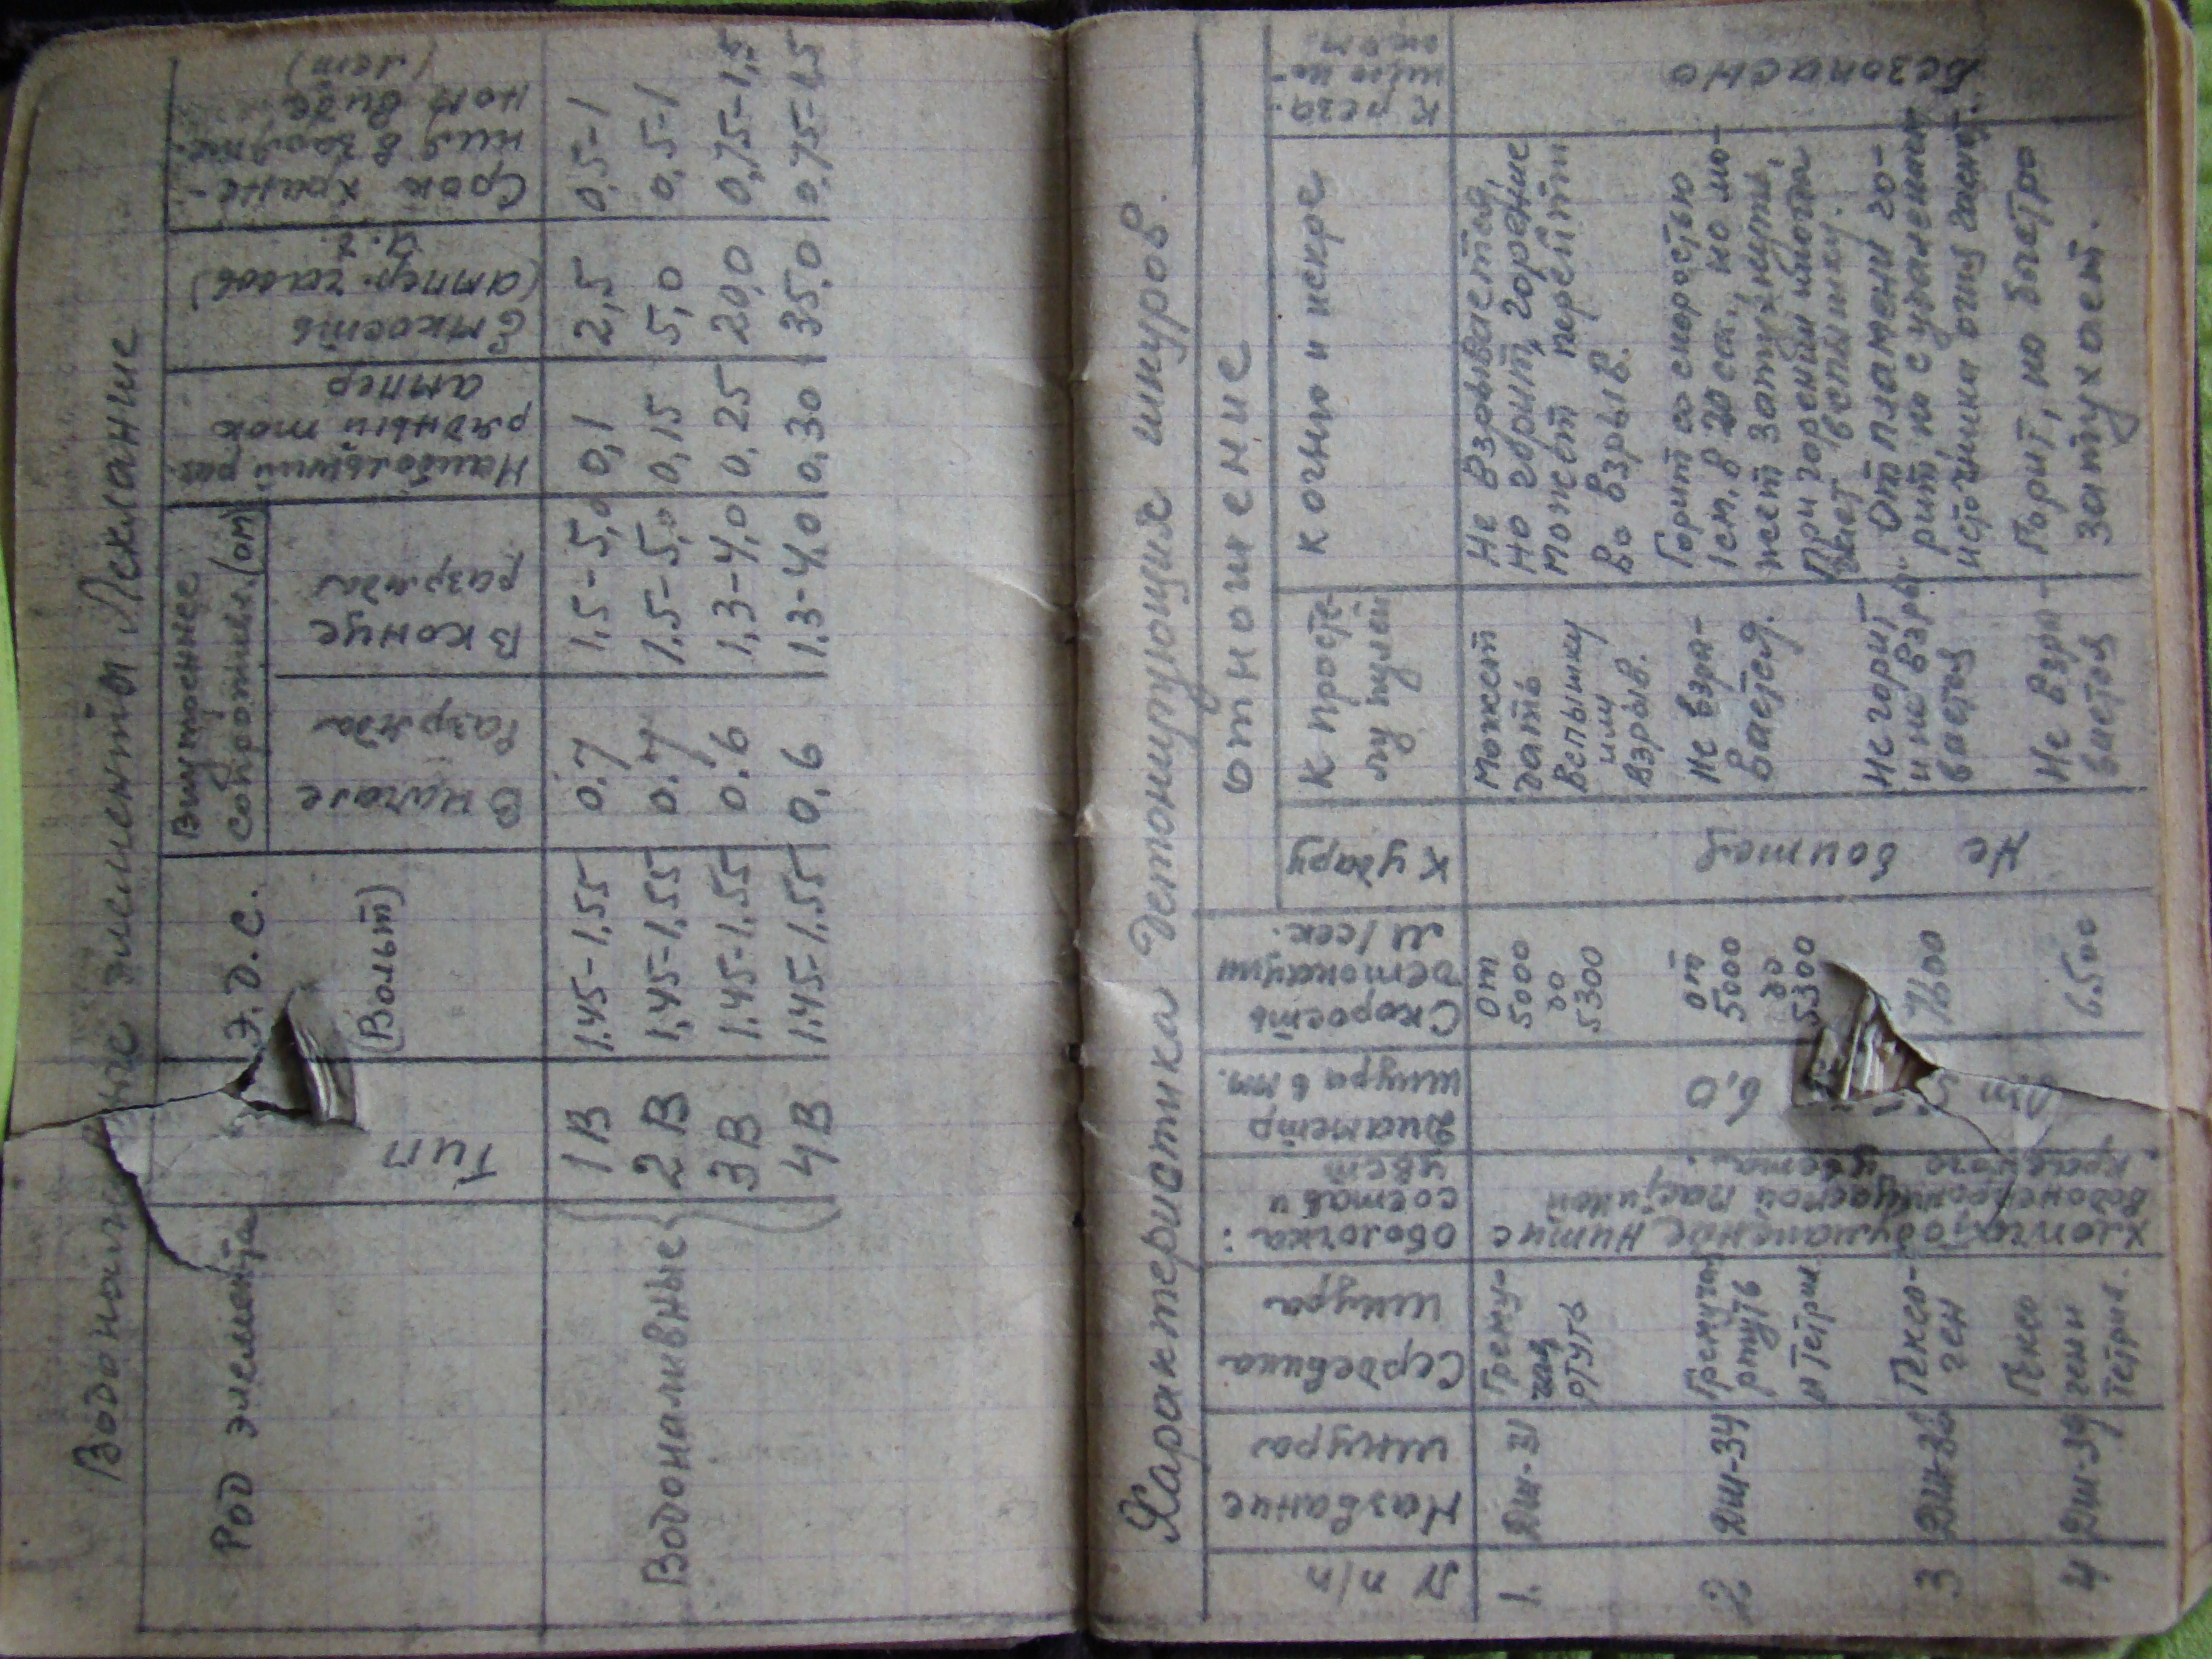 Водоналивные элементы Лекланше
Род элемента
Тип
Э.Д.С.
(Вольт)
Внутреннее
сопротивлен. (ом)
В начале
разряда
В конце
разряда
Наибольший раз.
рядный ток
ампер
Ёмкость
(ампер. часов)
Срок хране-
ния в заряже.
ном виде
(лет)
Водоналивные
1В 1.45-1,55 0.7 1,5-5,0 0,1 2,5 0,5-1
2В 1,45-1,55 0.7 1,5-5,0 0,15 5,0 0,5-1
3В 1.45-1,55 0.6 1,3-4,0 0,25 20,0 0,75-1,5
4В 1.45-1.55 0,6 1.3-4.0 0,30 35,0 0,75-1,5
Характеристика Детонирующих шнуров.
№ п/п
Название
шнура
Сердевина
шнура
Оболочка:
состав и
цвет
Диаметр
шнура в мм.
Скорость
детонации
М/сек.
отношение
К удару
К простре-
лу пулей
К огню и искре
К реза.
нию но-
жом.
1.
ДШ-31
Грему-
чая
ртуть
от
5000
до
5300
Может
дать
вспышку
или
взрыв.
Не взрывается,
Но горит, горение
может перейти
во взрыв.
2
ДШ-34
Гремучая
ртуть
и тетрил
6,0
от
5000
до
5300
Не взры-
вается.
Горит со скоростью
1см. в 20 сек., но мо-
жет затухнуть,
При горении иногда
дает вспышку.
3
ДШ-36
Гексо-
ген
7600
Не горит
и не взры-
вается
От пламени го-
рит, но с удалением
источника огня гаснет.
4
ДШ-39
Гексо
ген и
тетрил.
6500
Не взры-
вается
Горит, но быстро
затухает.
Хлопчатобумажные нитис
водонепроницаемой мастикой
красного цвета.
Не боится
Безопасно